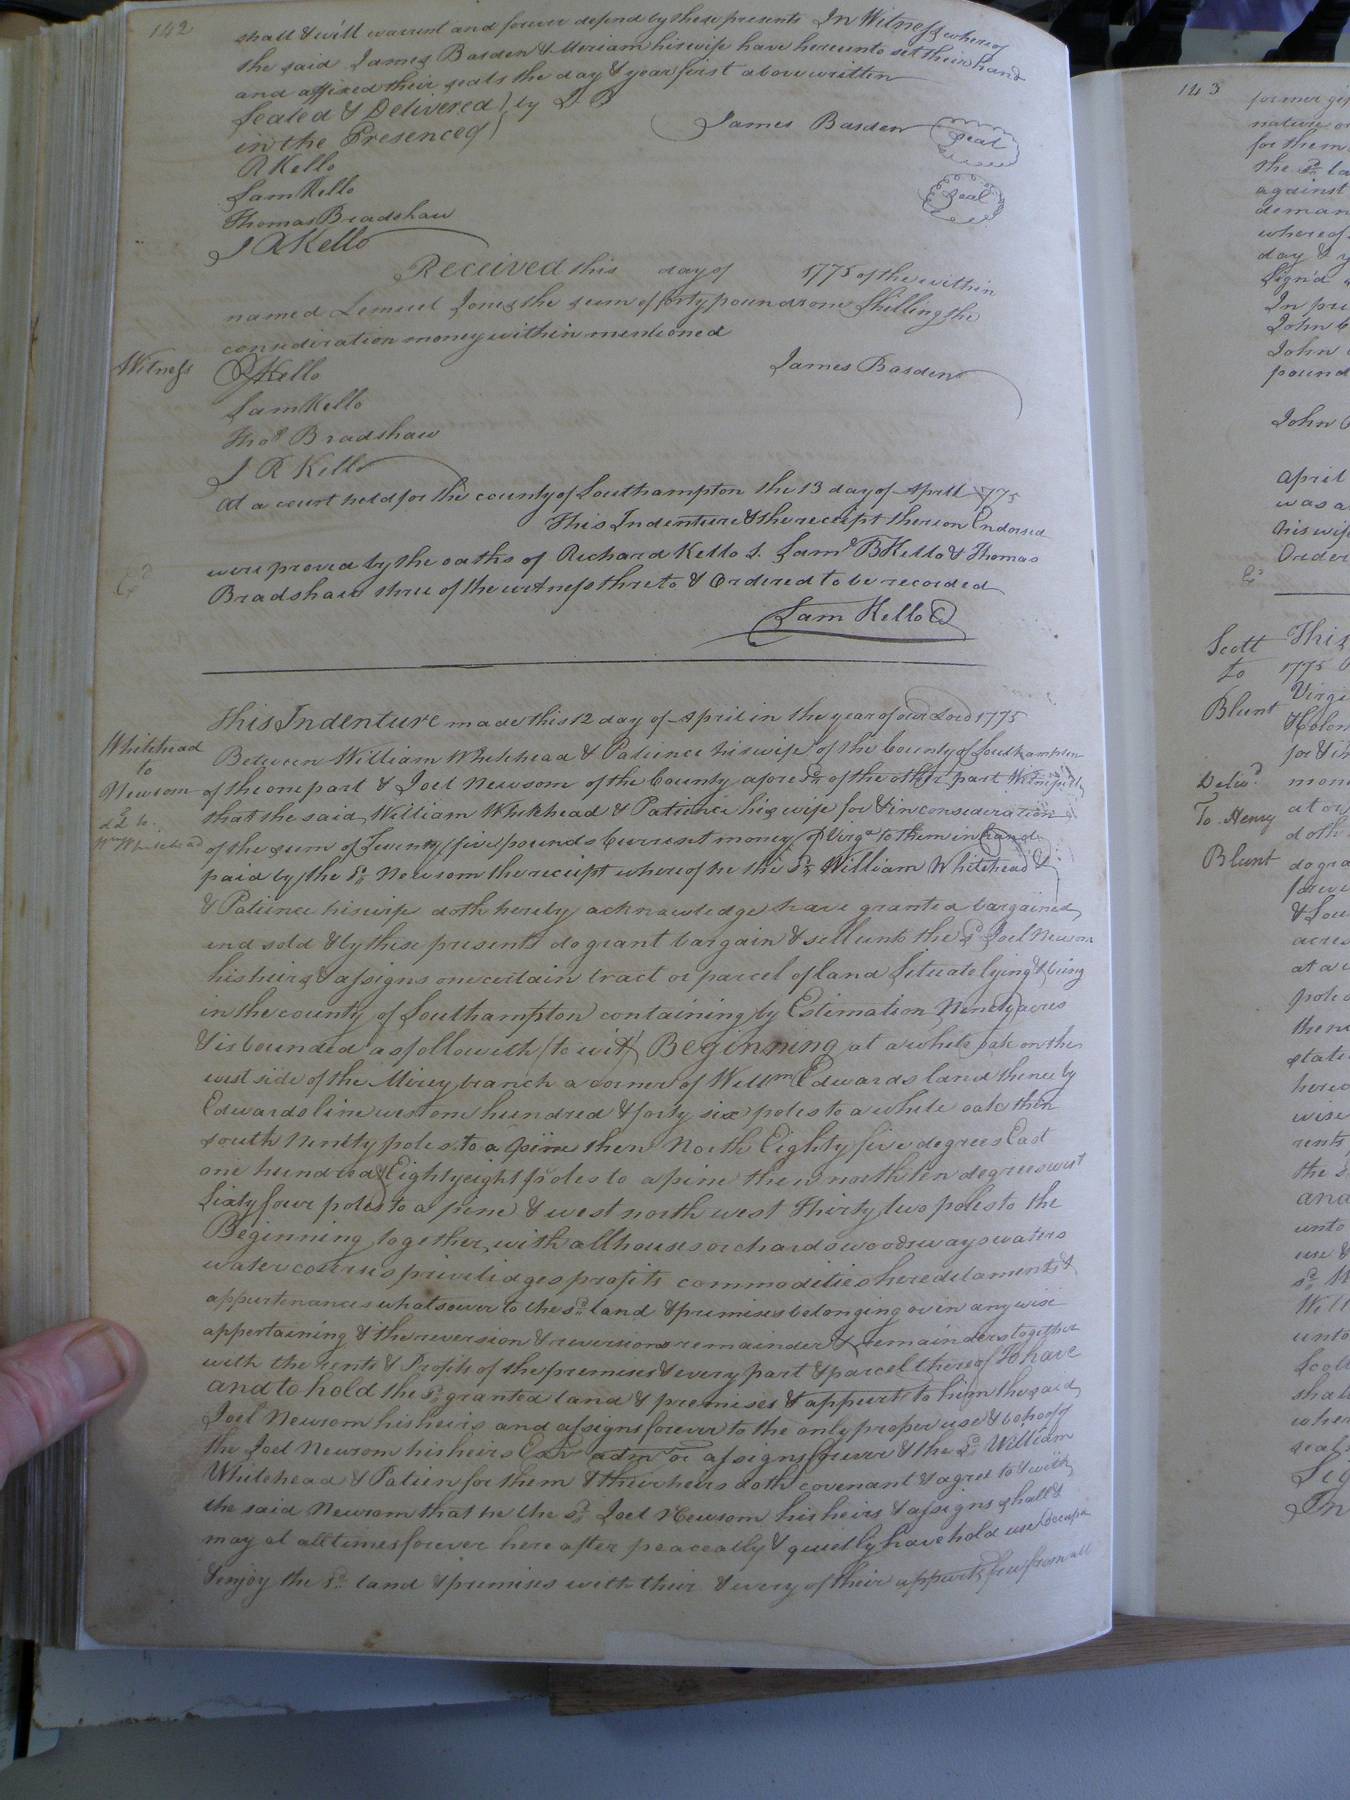 142
shall & will warrent and forever defend by these presents In Witness whereof
the said James Basden & Meriam his wife have hereunto set their hand
and affixed their seals the day & year first above written
Sealed & Delivered) by
in the Presence of)
James Basden Seal
Seal
R Kello
Sam Kello
Thomas Bradshaw
J R Kello
Received this day of 1775 of the within
named Lemuel Jones the sum of forty pounds one Shilling the
consideration money within mentioned
Witness
R Kello
James Basden
Sam Kello
Thos Bradshaw
J R Kello
At a court held for the county of Southampton the 13 day of Aprill 1775
This Indenture & the receipt thereon Endorsed
were proved by the oaths of Richard Kello Saml B Kello & Thomas
Bradshaw three of the witness threto & Ordered to be recorded
Ex
Sam Kello
Whitehead
to
Newsom
This Indenture made this 12 day of April in the year of our Lord 1775
Between William Whitehead & Patience his wife of the County of Southampton
of the one part & Joel Newsom of the County afore sd of the other part Witnesseth
that the said William Whitehead & Patience his wife for & in consideration
of the sum of Seventy five pounds Current money of Virga to them in hand
paid by the sd Newsom the receipt whereof he the sd William Whitehead &
& Patience his wife doth hereby acknowledge have granted bargained
and sold & by these presents do grant bargain & sell unto the sd Joel Newsom
his heirs & assigns one certain tract or parcel of land Situate lying & being
in the county of Southampton containing by Estimation Ninety acres
& is bounded as followeth (to wit) Beginning at a white oak on the
west side of the Mirey branch a corner of Willm Edwards land thence by
Edwards line west one hundred & forty six poles to a white oak then
south Ninety poles to a pine then North Eighty five degrees East
one hundred & Eighty eight poles to a pine then north ten degrees west
Sixty four poles to a pine & west north west Thirty two poles to the
Beginning together with all houses orchards woods ways waters
water courses priviledges profits commodities heredetaments &
appurtenances whatsoever to the sd land & premises belonging or in any wise
appertaining & the reversion & reversions remainder & remainders together
with the rents & Profits of the premises & every part & parcel thereof To have
and to hold the sd granted land & premises & appurts to him the said
Joel Newsom his heirs and assigns forever to the only proper use & behoof of
the Joel Newsom his heirs Exr admr or assigns forever & the sd William
Whitehead & Patien for them & their heirs doth covenant & agree to & with
the said Newsom that he the sd Joel Newsom his heirs & assigns shall &
may at all times forever here after peaceably & quietly have hold use occupa
& enjoy the sd land & premises with their & every of their appurts free from all
143
nature or
for them
the sd la
against
deman
whereof
day &
Sign'd
In pre
John
John
pound
John
April
was a
his wife
Order
Scott
to
Blunt
Delivd
To Henry
Blunt
This
1775
Virgi
for & in
mone
at or
doth
do gra
foreve
& Sou
acres
at a
pole
then
state
here
wise
rents
the s
and
unto
use &
sd
Will
unto
Scott
shal
wher
seal
Sig
In